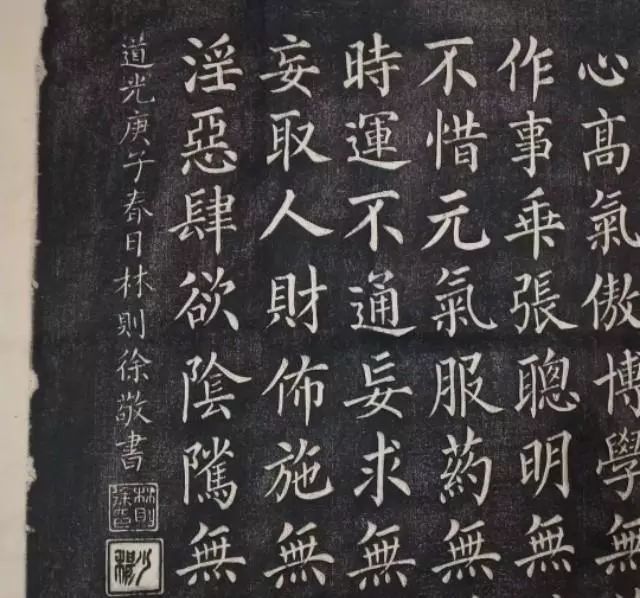 心髙氣傲博學無
作事乘張聰明無
不惜元氣服药無
時運不通妄求無
妄取人財佈施無
淫惡肆欲陰隲無
道光庚午春日林則徐敬書
林則徐印
少穆